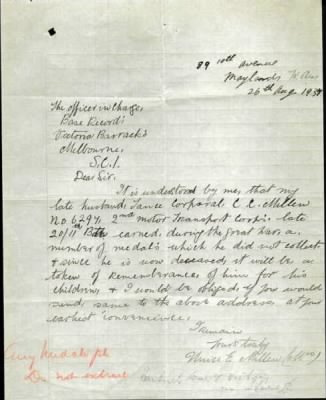 89 10th Avenue
Maylands W. Aus
26th Aug 195
The Officer in Charge,
Base Records
Victoria Barracks
Melbourne.
S.C.1.
Dear Sir.
It is understood by me, that my
late husband, Lance Corporal C. C. Millen
No 6297, 2nd Motor Transport Corps. late
20/11th Batt earned, during the great war, a
number of medals which he did not collect
& since he is now deceased, it will be as
token of Rememberances of him for his
children, & I would be obliged if you would
send, same to the above address, at your
earliest convenience.
I remain
yours truly
E Millen (Mrs)
Any medals pl
Do not extract